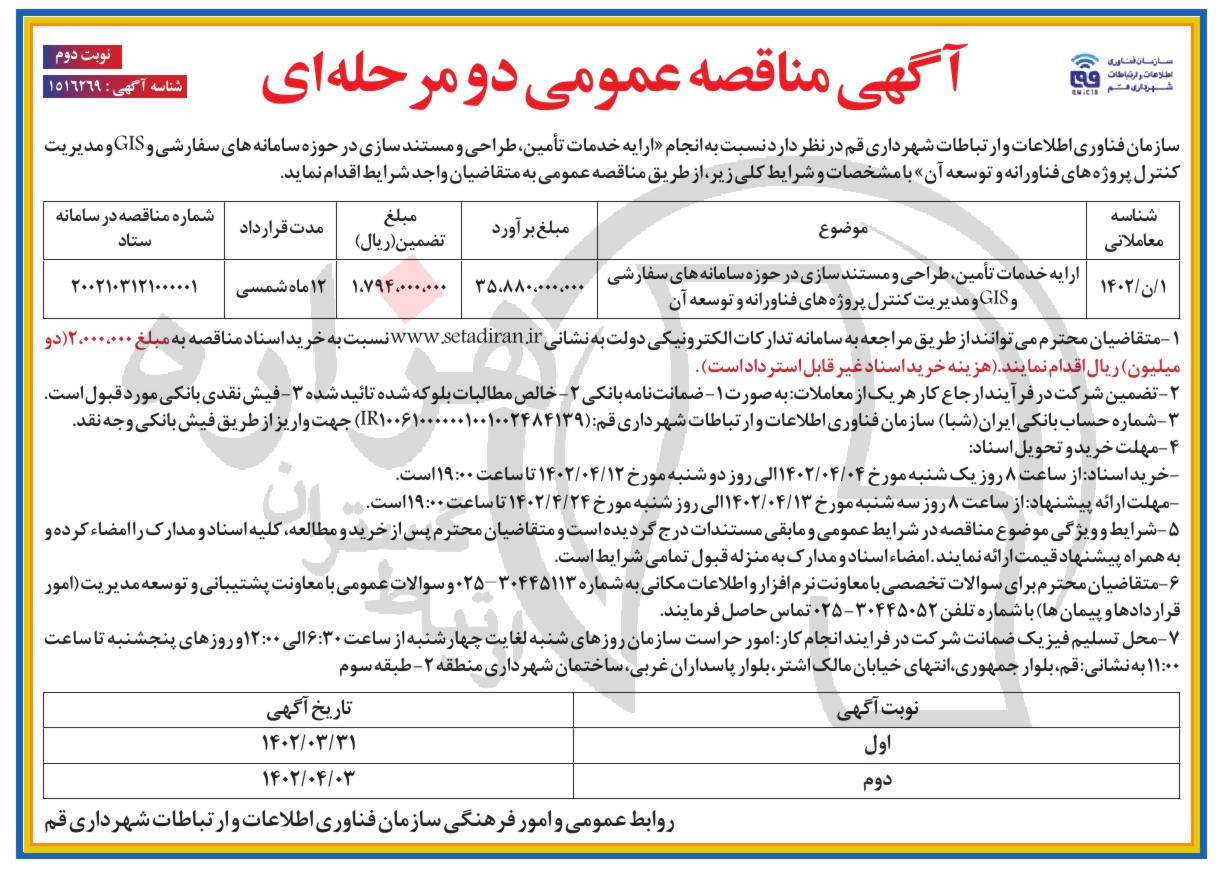 سازمان فناوری
اطلاعات و ارتباطات
شهرداری قم
QMICIO
آگهی مناقصه عمومی دو مرحله‌ای
نوبت دوم
شناسه آگهی : ۱۵۱۶۲۶۹
سازمان فناوری اطلاعات و ارتباطات شهرداری قم در نظر دارد نسبت به انجام «ارایه خدمات تأمین، طراحی و مستندسازی در حوزه سامانه های سفارشی و GIS و مدیریت
کنترل پروژه های فناورانه و توسعه آن» با مشخصات و شرایط کلی زیر، از طریق مناقصه عمومی به متقاضیان واجد شرایط اقدام نماید.
شناسه معاملاتی | موضوع | مبلغ برآورد | مبلغ تضمین(ریال) | مدت قرارداد | شماره مناقصه در سامانه ستاد
۱/ن/۱۴۰۲ | ارایه خدمات تأمین، طراحی و مستندسازی در حوزه سامانه های سفارشی و GIS و مدیریت کنترل پروژه های فناورانه و توسعه آن | ۳۵.۸۸۰.۰۰۰.۰۰۰ | ۱.۷۹۴.۰۰۰.۰۰۰ | ۱۲ماه شمسی | ۲۰۰۲۱۰۳۱۲۱۰۰۰۰۰۱
۱-متقاضیان محترم می توانند از طریق مراجعه به سامانه تدارکات الکترونیکی دولت به نشانی www.setadiran.ir نسبت به خرید اسناد مناقصه به مبلغ ۲.۰۰۰.۰۰۰(دو
میلیون) ریال اقدام نمایند.(هزینه خرید اسناد غیر قابل استرداد است).
۲-تضمین شرکت در فرآیند ارجاع کار هر یک از معاملات: به صورت ۱-ضمانت‌نامه بانکی ۲-خالص مطالبات بلوکه شده تائید شده ۳-فیش نقدی بانکی مورد قبول است.
۳-شماره حساب بانکی ایران(شبا) سازمان فناوری اطلاعات و ارتباطات شهرداری قم: (IR۱۰۰۶۱۰۰۰۰۰۰۱۰۰۱۰۰۲۴۸۴۱۳۹) جهت واریز از طریق فیش بانکی وجه نقد.
۴-مهلت خرید و تحویل اسناد:
-خرید اسناد: از ساعت ۸ روز یک شنبه مورخ ۱۴۰۲/۰۴/۰۴الی روز دو شنبه مورخ ۱۴۰۲/۰۴/۱۲ تا ساعت ۱۹:۰۰است.
-مهلت ارائه پیشنهاد: از ساعت ۸ روز سه شنبه مورخ ۱۴۰۲/۰۴/۱۳الی روز شنبه مورخ ۱۴۰۲/۴/۲۴ تا ساعت ۱۹:۰۰است.
۵-شرایط و ویژگی موضوع مناقصه در شرایط عمومی و مابقی مستندات درج گردیده است و متقاضیان محترم پس از خرید و مطالعه، کلیه اسناد و مدارک را امضاء کرده و
به همراه پیشنهاد قیمت ارائه نمایند. امضاء اسناد و مدارک به منزله قبول تمامی شرایط است.
۶-متقاضیان محترم برای سوالات تخصصی با معاونت نرم افزار و اطلاعات مکانی به شماره ۳۰۴۴۵۱۱۳-۰۲۵ و سوالات عمومی با معاونت پشتیبانی و توسعه مدیریت (امور
قراردادها و پیمان ها) با شماره تلفن ۳۰۴۴۵۰۵۲-۰۲۵ تماس حاصل فرمایند.
۷-محل تسلیم فیزیک ضمانت شرکت در فرایند انجام کار: امور حراست سازمان روزهای شنبه لغایت چهارشنبه از ساعت ۶:۳۰الی ۱۲:۰۰ و روزهای پنجشنبه تا ساعت
۱۱:۰۰ به نشانی: قم، بلوار جمهوری، انتهای خیابان مالک اشتر، بلوار پاسداران غربی، ساختمان شهرداری منطقه ۲-طبقه سوم
نوبت آگهی | تاریخ آگهی
اول | ۱۴۰۲/۰۳/۳۱
دوم | ۱۴۰۲/۰۴/۰۳
روابط عمومی و امور فرهنگی سازمان فناوری اطلاعات و ارتباطات شهرداری قم
هزاره
گستران
ارتباط